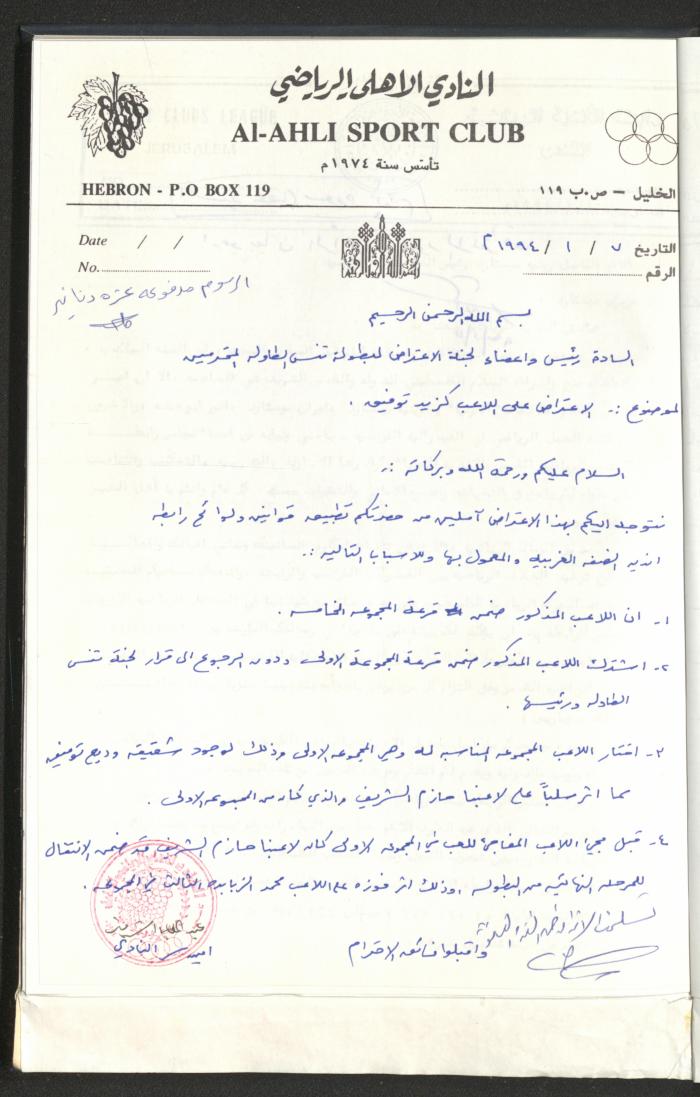 النادي الأهلي الرياضي
Al-AHLI SPORT CLUB
تأسس سنة ١٩٧٤ م
HEBRON - P.O BOX 119
الخليل – ص.ب ١١٩
Date / /
التاريخ ٧ / ١ / ١٩٩٤ م
No.
الرقم
الرسوم مدفوعه عشره دنانير
بسم الله الرحمن الرحيم
السادة رئيس واعضاء لجنة الاعتراض لبطولة تنس الطاوله المحترمين
الموضوع :- الاعتراض على اللاعب توفيق .
السلام عليكم ورحمة الله وبركاته :-
نتوجه اليكم بهذا الاعتراض آملين من حضرتكم تطبيق قوانين ولوائح رابطه
انديه الضفه الغربيه والمعمول بها وللاسباب التاليه :-
١- ان اللاعب المذكور ضمن قرعة المجموعه الخامسه .
٢- اشترك اللاعب المذكور ضمن قرعة المجموعة الاولى ودون الرجوع الى قرار لجنة تنس
الطاوله ورئيسها .
٣- اختار اللاعب المجموعه المناسبه له وهي المجموعه الاولى وذلك لوجود شقيقه وديع توفيق
مما اثر سلبياً على لاعبنا حازم الشريف والذي كان من المجموعه الاولى .
٤- قبل مجيء اللاعب المفاجئ للعب في المجموعه الاولى كان لاعبنا حازم الشريف قد ضمن الانتقال
للمرحله النهائيه من البطوله وذلك اثر فوزه على اللاعب محمد الثالث في المجموعه .
واقبلوا فائق الاحترام
امين سر النادي